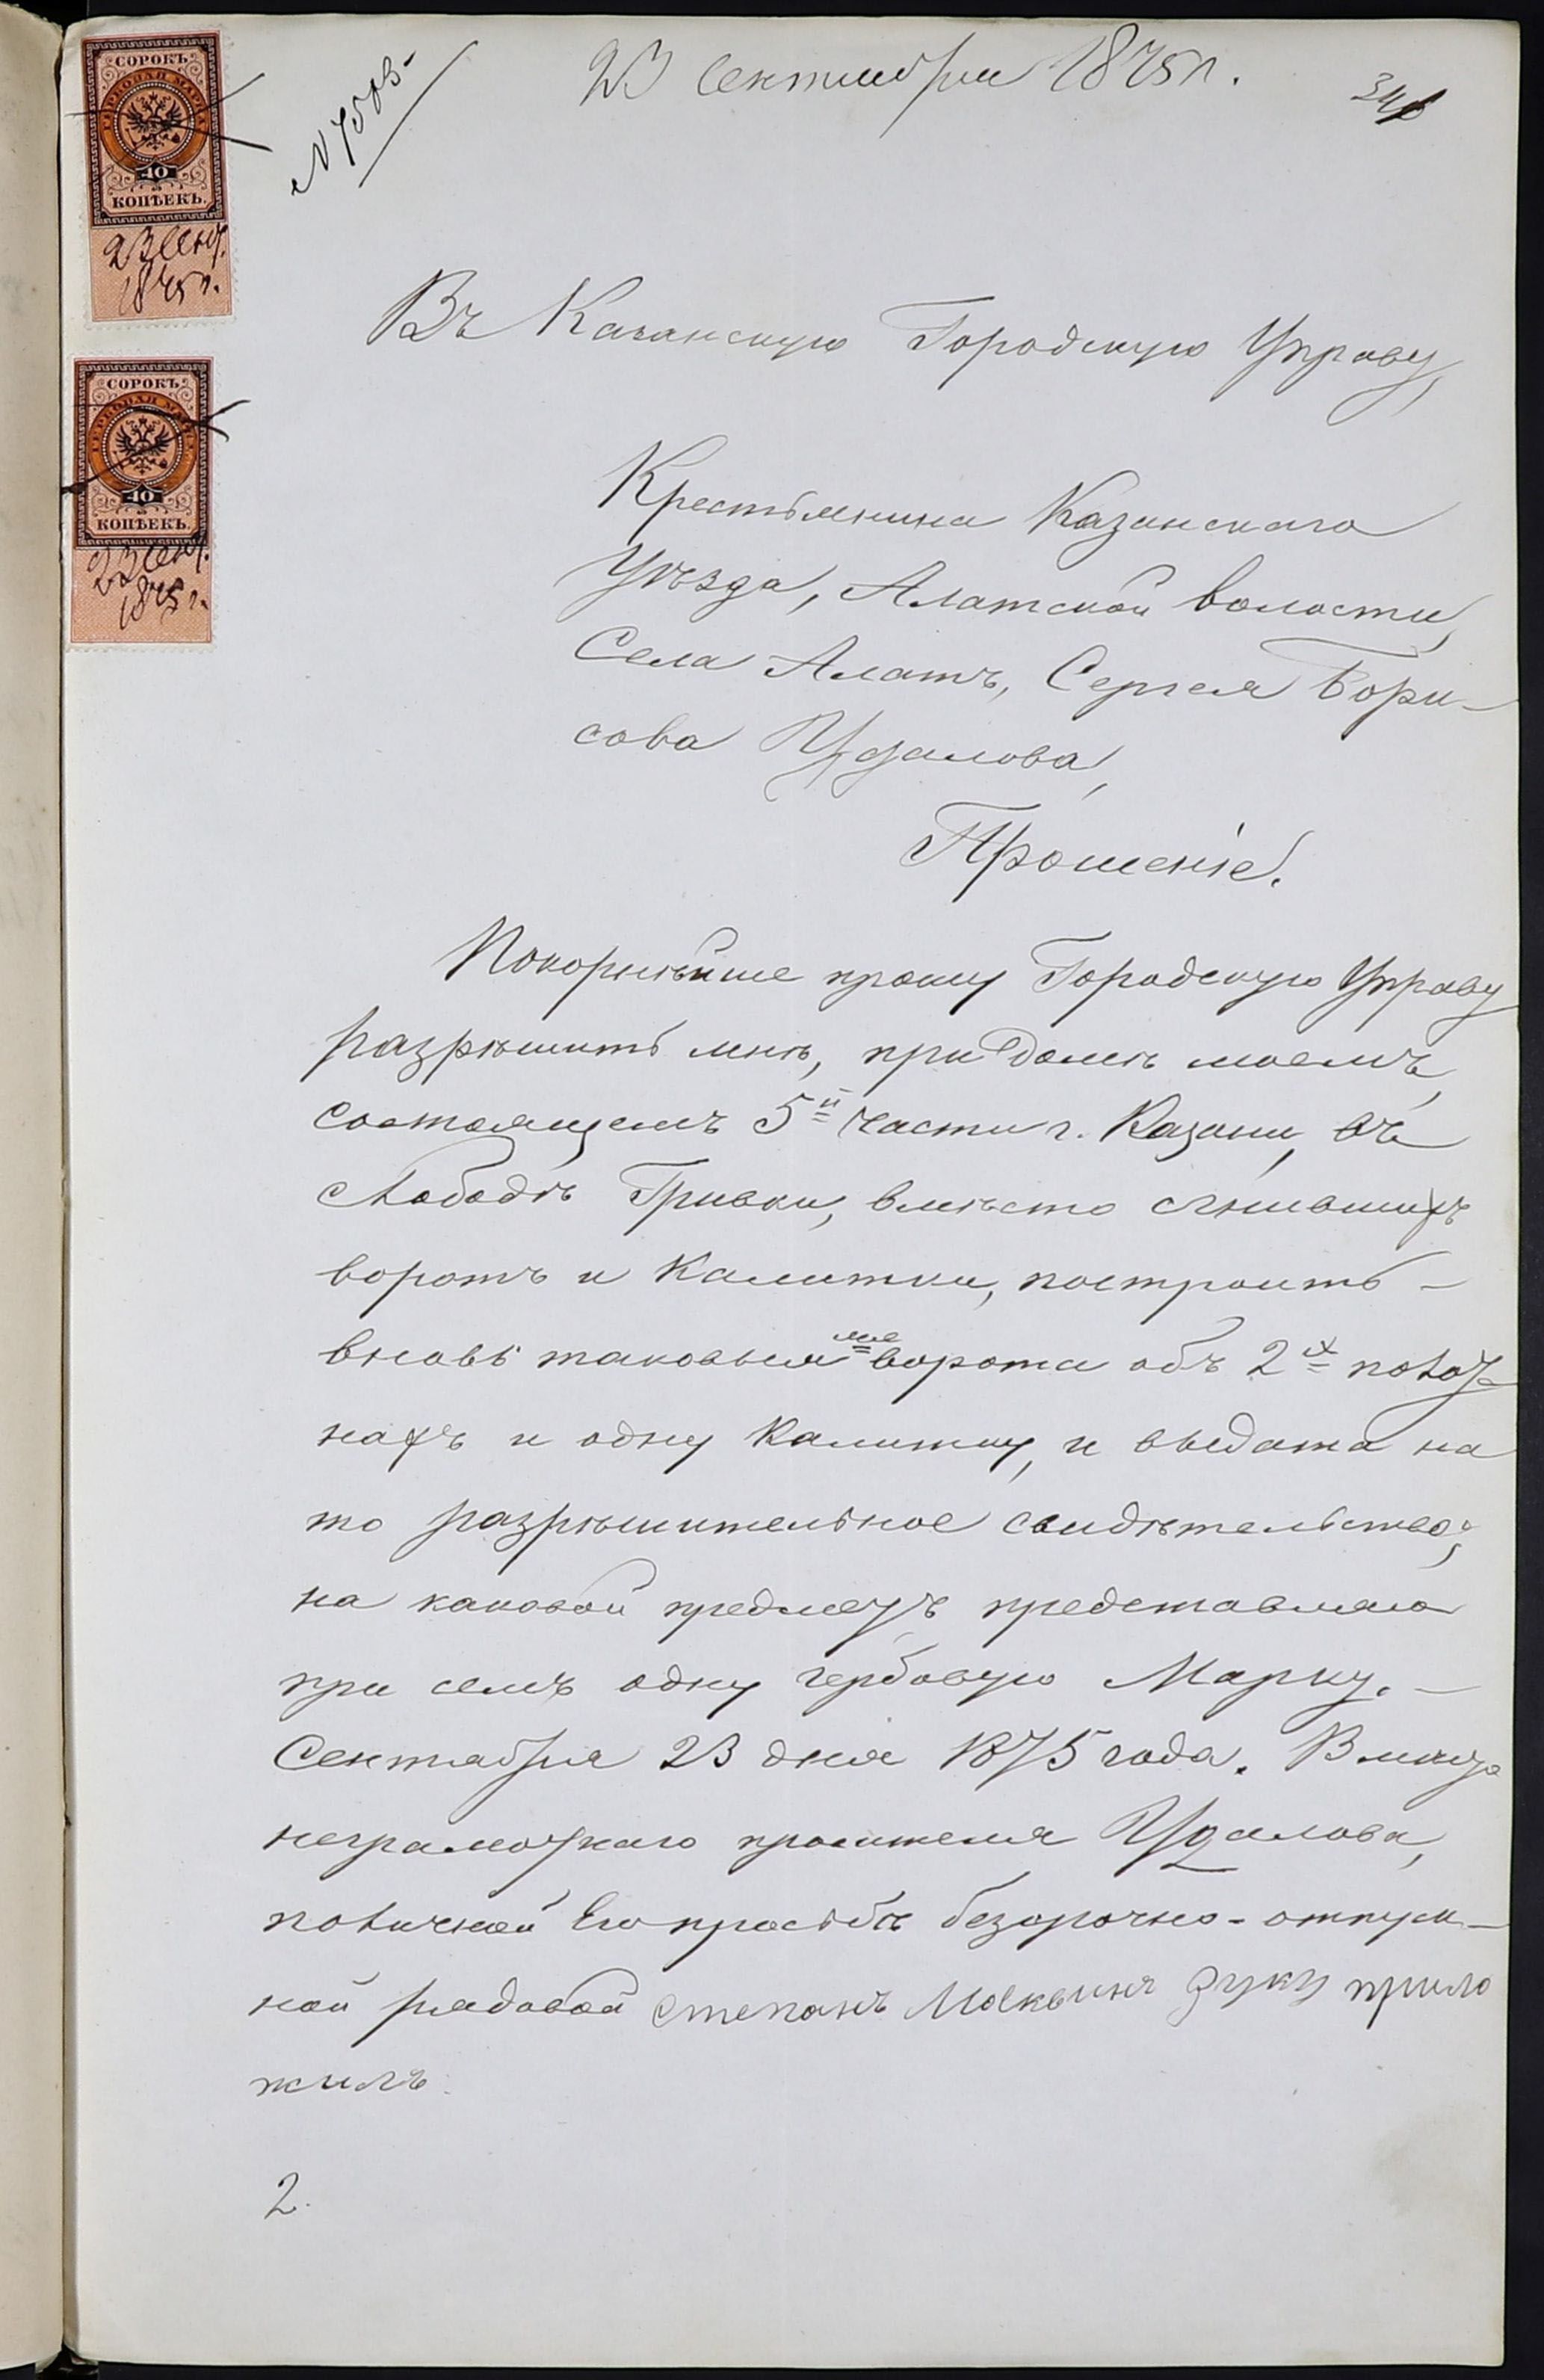 СОРОКЪ
ГЕРБОВАЯ МАРКА
40
КОПѢЕКЪ.
23 Сент.
1875 г.
СОРОКЪ
ГЕРБОВАЯ МАРКА
40
КОПѢЕКЪ.
23 Сент.
1875 г.
23 Сентября 1875 г.
Въ Казанскую Городскую Управу,
Крестьянина Казанскаго
Уѣзда, Алатской волости,
Села Алатъ, Сергея Бори-
сова Удалова,
Прошеніе.
Покорнѣйше прошу Городскую Управу
разрѣшить мнѣ, при домѣ моемъ,
состоящемъ 5й части г. Казани, въ
слободѣ Гривки, вмѣсто сгнившихъ
воротъ и калитки, построить -
вновь таковыя же ворота объ 2х полот-
нахъ и одну калитку, и выдать на
то разрѣшительное свидѣтельство;
на каковой предметъ представляю
при семъ одну гербовую марку. -
Сентября 23 дня 1875 года. Вмѣсто
неграмотнаго просителя Удалова,
по личной Его просьбѣ безсрочно-отпуск-
ной рядовой Степанъ Москвинъ руку прило
жилъ.
2.